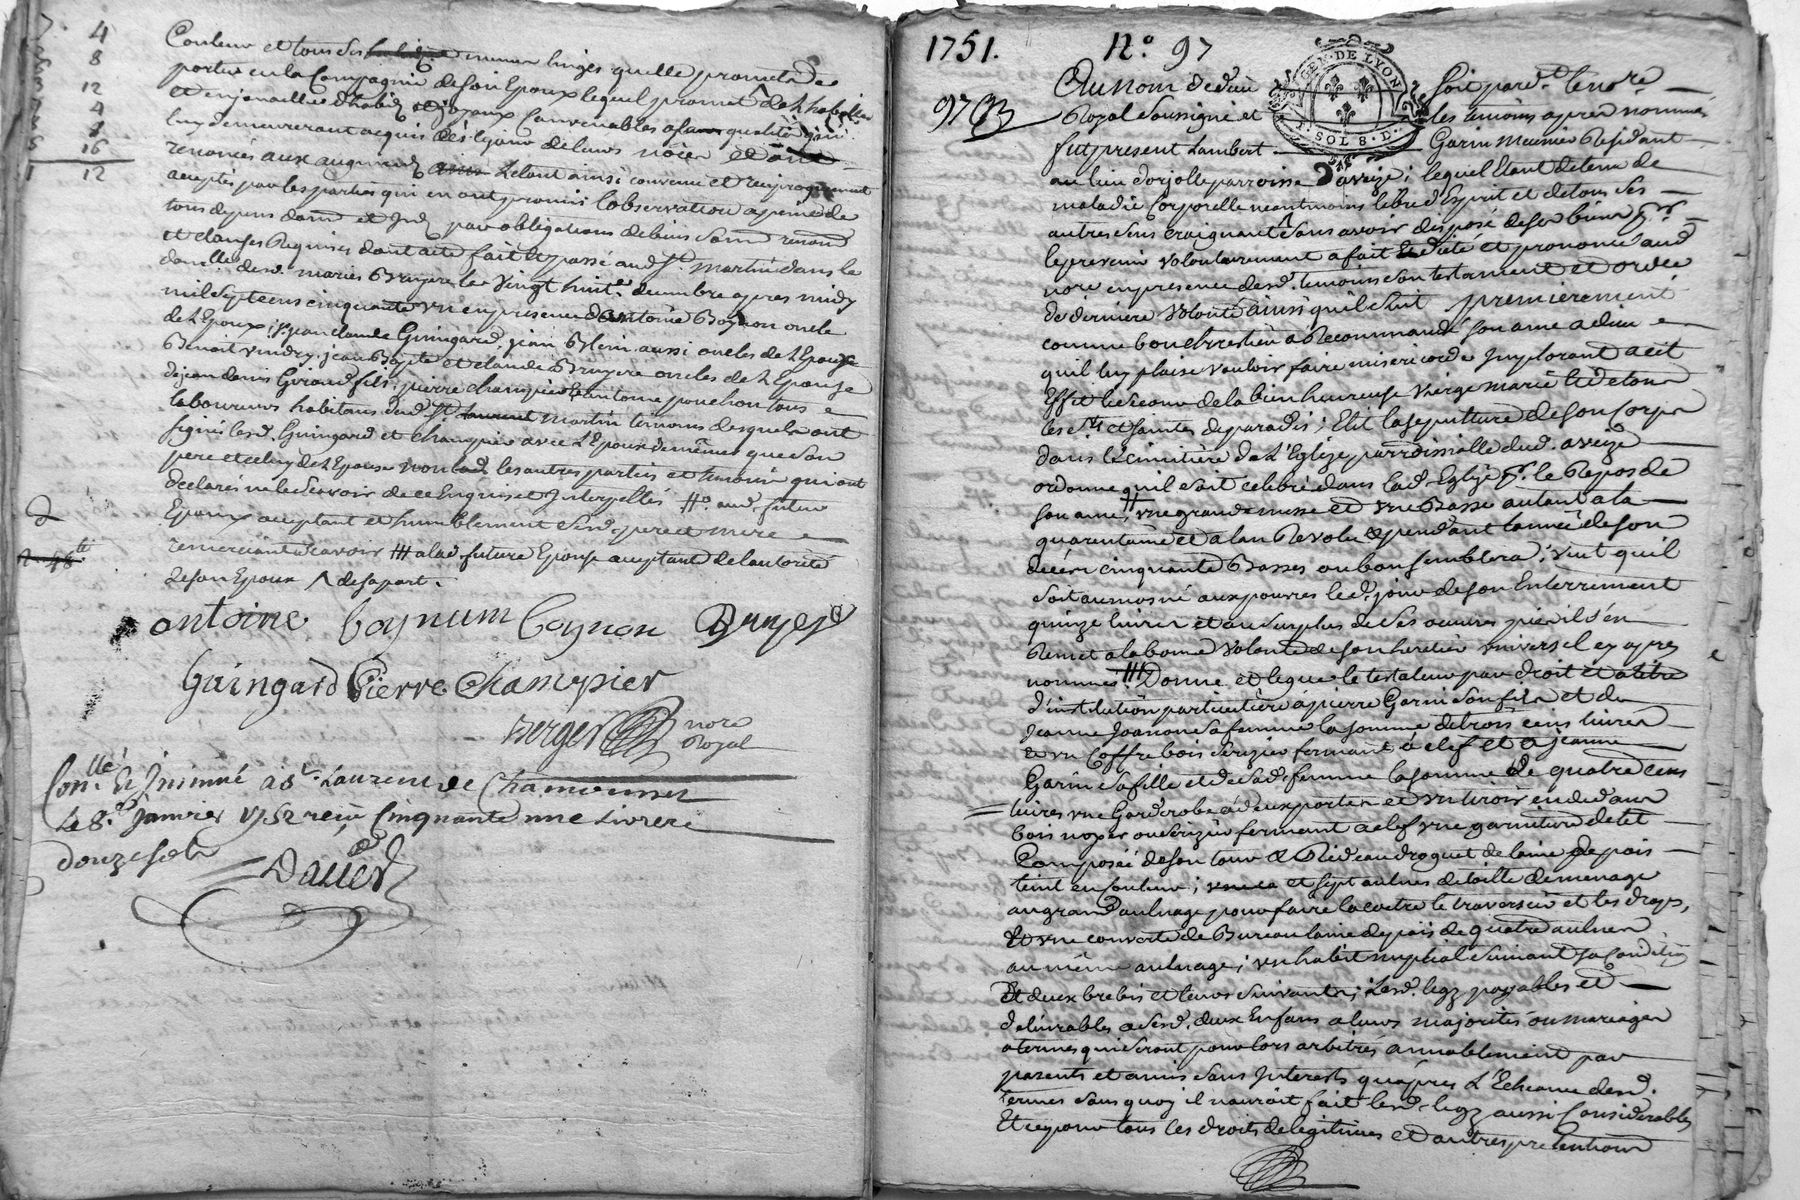 4
8
12
4
8
16
12
Couleur et tous ses menus linges quelle promet de
porter en la Compagnie de son Epoux lequel promet de l'habiller
et enjoailler d'habits et joyaux Convenables a sa qualité qui
luy demeureront acquis dès le jour de leurs nôces
renoncés aux augments Letout ainsi convenu et reciproquement
accepté par les parties qui en ont promis l'observation a peine de
tous depens dam. et Int. par obligations de biens soum. renon.
et clauses Requises dont acte fait et passé aud. St. martin dans le
domille desd. mariés Bruyere le vingt huit decembre apres midy
mil sept cens cinquante un en presence d'antoine Boynon oncle
de L'Epoux; Sr. jean claude Guingard, jean Blein aussi oncles de L'Epouse
Benoit vindry, jean Bapte et claude Bruyere oncles de L'Epouse
jean denis Giraud fils, pierre champier et antoine ponchon tous
laboureurs habitans dud. St. martin temoins desquels ont
signé lesd. Guingard et champier avec L'Epoux de même que son
pere et celuy de L'Epouse non lad. les autres parties et temoins qui ont
declarés ne le scavoir de ce Enquis et Interpellés # aud. futur
Epoux acceptant et humblement sesd. pere et mere
remerciant a scavoir ## a lad. future Epouse acceptant de l'autorité
de son Epoux ^ de sa part.
antoine Coynum Coynon Bruyere
Guingard Pierre Champier
Berger nore
Royal
Conllé Et Insinué a St. Laurent de Chamousset
Le 8e. Janvier 1752 reçu Cinquante une Livrere
douze sols
Daller
1751. N.° 97
97
GEN. DE LYON
1. SOL 8. D.
Au Nom de dieu Soit pard.t le nore
Royal soussigné et les temoins apres nommés
fut present Lambert Garin Meunier Residant
au lieu dorjolle parroisse D'aveize; lequel Etant detenu de
maladie Corporelle neantmoins libre d'Esprit et de tous ses
autres sens craignant ^ sans avoir disposé de ses biens pr.
le prevenir volontairement a fait dicté et prononcé aud.
nore en presence desd. temoins son testament et ordce
de derniere volonté ainsi qu'il suit premierement
comme bon chretien a Recommandé son ame a dieu
qu'il luy plaise vouloir faire misericorde Implorant a cet
Effet le secour de la bien heureuse vierge marie et de tous
les sts et saintes de paradis; Elit la sepulture de son corps
dans le cimitiere de L'Eglize parroissialle dud. aveize
ordonne qu'il soit celebré dans lad. Eglize pr. le Repos de
son ame # une grande messe et une Basse autant a la
quarantaine et a lan Revolu & pendant lannée de son
deces cinquante Basses ou bon semblera; veut qu'il
soit aumosné aux pauvres led. jour de son Enterrement
quinze livres et au surplus de ses oeuvres pies il s'en
Remet a la bonne volonté de son heritier universel cy apres
nommé ## Donne et legue le testateur par droit et a titre
d'institution particuliere a pierre Garin son fils et de
Jeanne Joannon sa femme la somme de trois cens livres
& un Coffre bois serizier fermant a clef et a jeanne
Garin sa fille et de sad. femme la somme de quatre cens
livres une Garderobe a deux portes et un tiroir en dedans
bois noyer ou serizier fermant a clef une garniture de lit
Composée de son tour & Rideau droguet de laine de pais
teint en Couleur; et sept aulnes de toille de menage
au grand aulnage pour faire la coetre le traversier et les draps,
Et une couverte de Bureau laine de pais de quatre aulnes
au même aulnage; un habit nuptial suivant sa Condition
Et deux brebis et leurs suivants; Lesd. legz payables et
delivrables a sesd. deux Enfans a leurs majorités ou mariages
a termes qui seront pour lors arbitrés amiablement par
parents et amis sans Interests qu'après L'Echeance desd.
termes sans quoy il nauroit fait lesd. legz aussi Considerables
Et ce pour tous les droits de legitimes et dautres pretentions